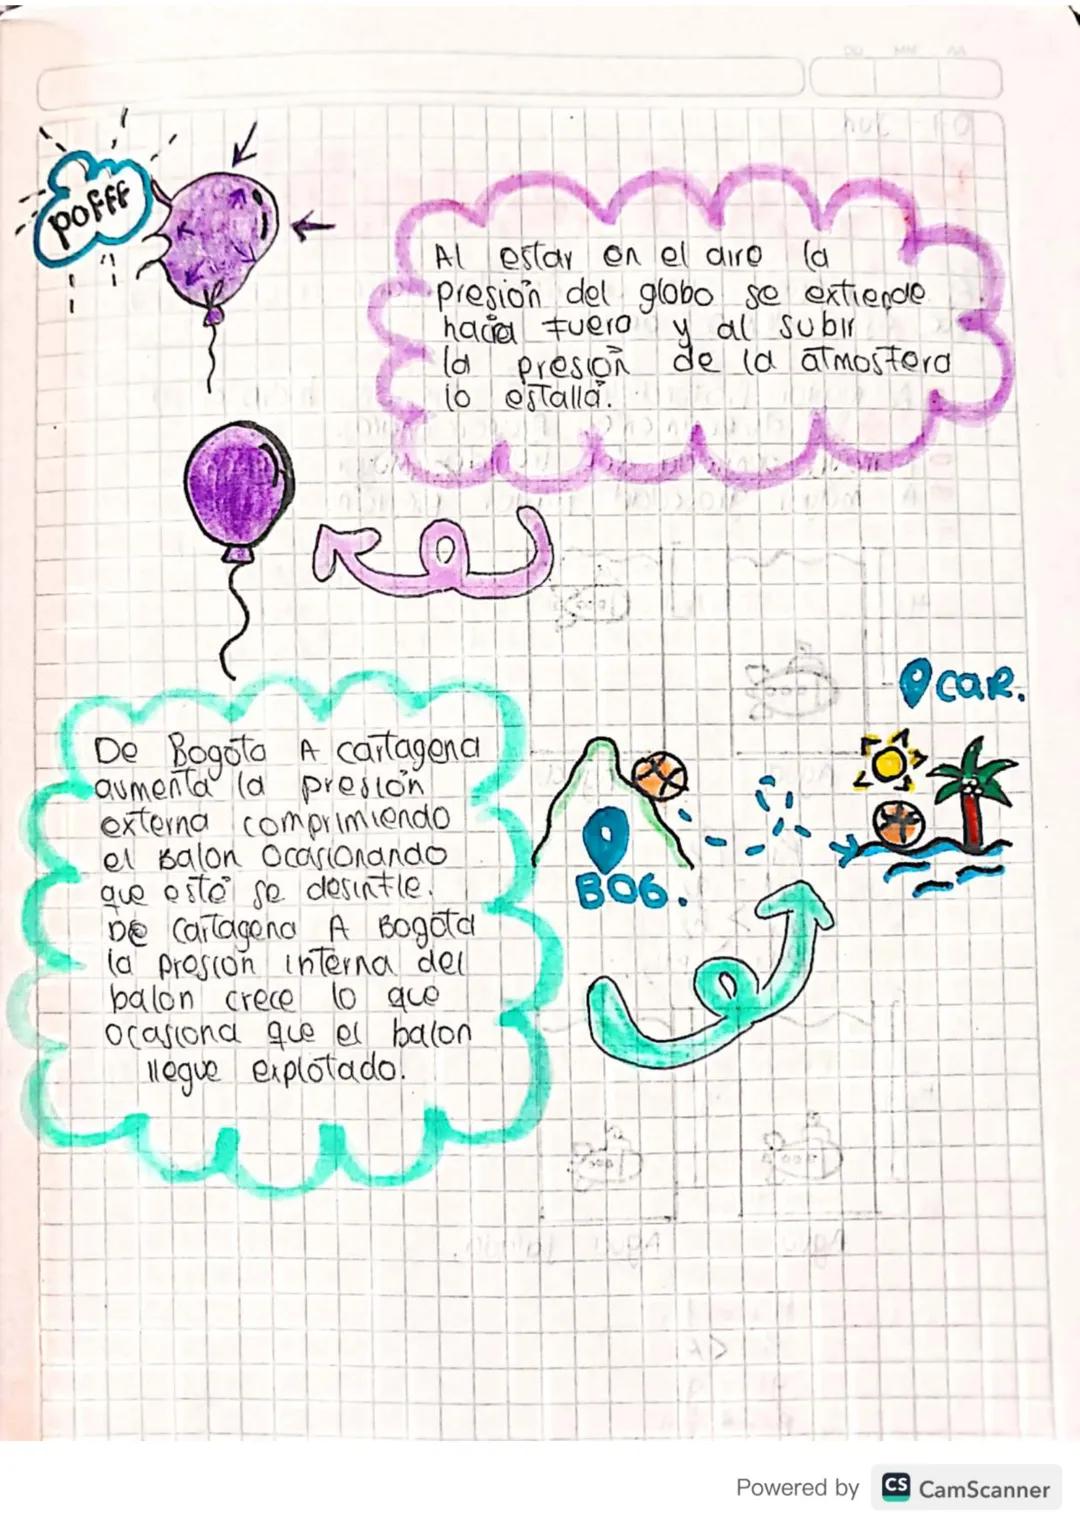 DD MM AA
pofff
Al estar en el aire la
presión del globo se extiende
hacia fuera y al subir
la presión de la atmosfera
lo estalla.
CAR.
De Bogota A cartagena
aumenta la presión
externa comprimiendo
el Balon ocasionando
que esté se desinfle.
De Cartagena A Bogota
la presion interna del
balon crece lo que
ocasiona que el balon
llegue explotado.
BOG.
Powered by CS CamScanner